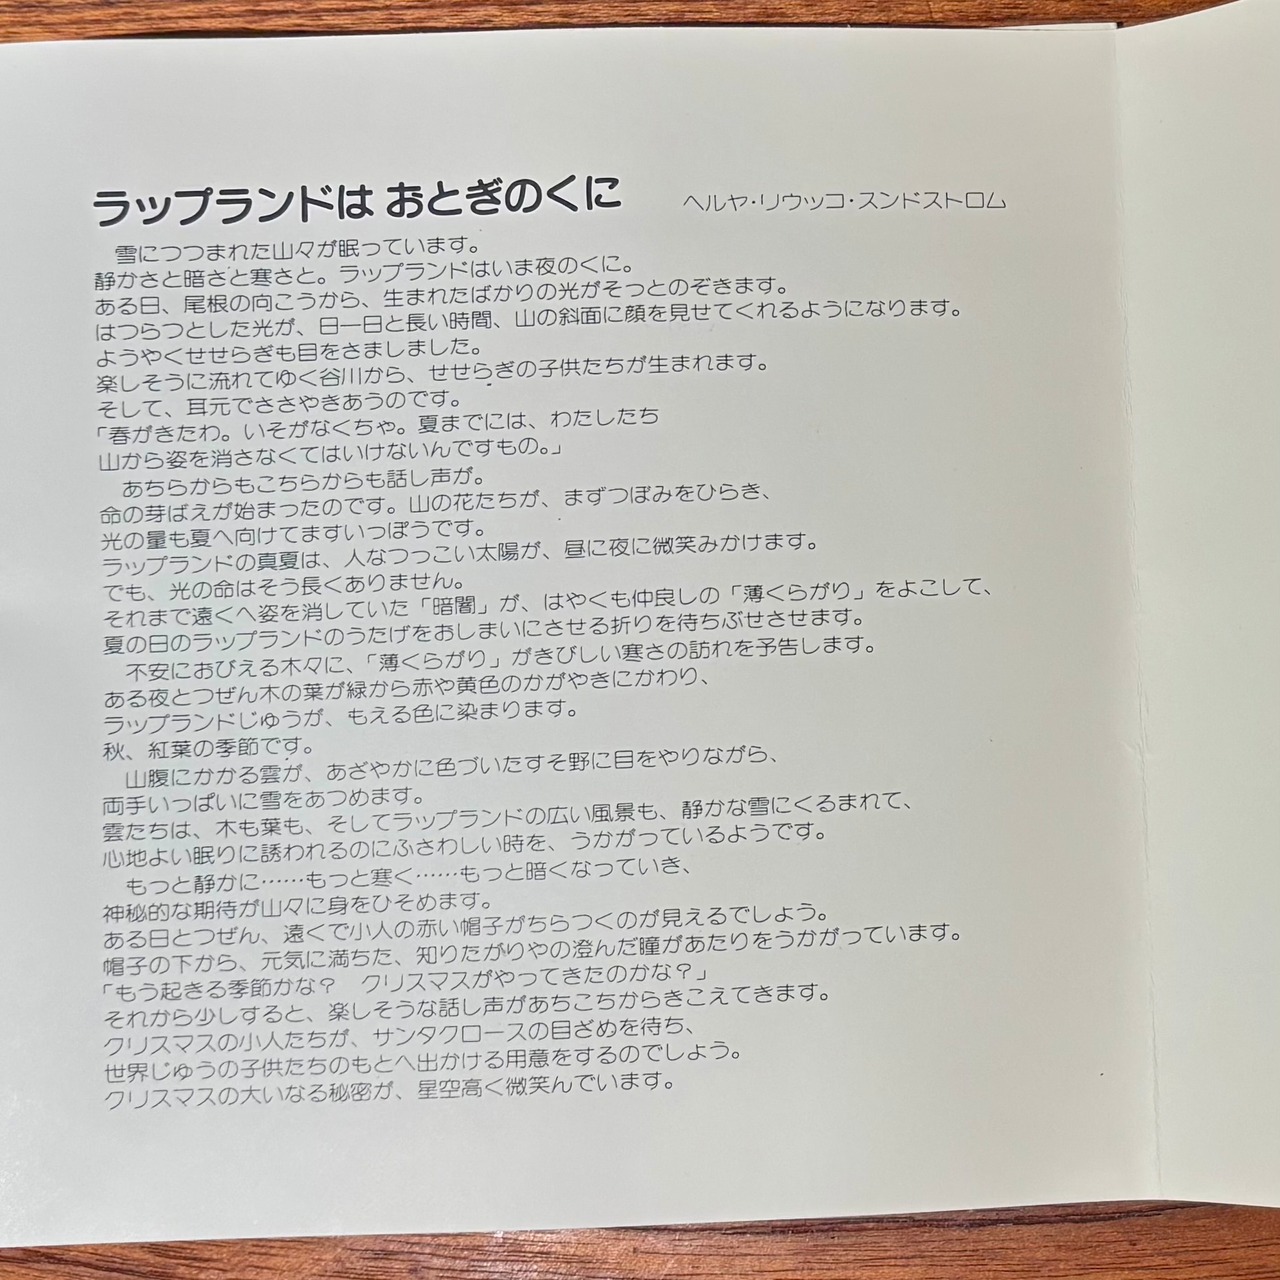 ラップランドは おとぎのくに　ヘルヤ・リウッコ・スンドストロム
雪につつまれた山々が眠っています。
静かさと暗さと寒さと。ラップランドはいま夜のくに。
ある日、尾根の向こうから、生まれたばかりの光がそっとのぞきます。
はつらつとした光が、日一日と長い時間、山の斜面に顔を見せてくれるようになります。
ようやくせせらぎも目をさましました。
楽しそうに流れてゆく谷川から、せせらぎの子供たちが生まれます。
そして、耳元でささやきあうのです。
「春がきたわ。いそがなくちゃ。夏までには、わたしたち
山から姿を消さなくてはいけないんですもの。」
あちらからもこちらからも話し声が。
命の芽ばえが始まったのです。山の花たちが、まずつぼみをひらき、
光の量も夏へ向けてますいっぽうです。
ラップランドの真夏は、人なつっこい太陽が、昼に夜に微笑みかけます。
でも、光の命はそう長くありません。
それまで遠くへ姿を消していた「暗闇」が、はやくも仲良しの「薄くらがり」をよこして、
夏の日のラップランドのうたげをおしまいにさせる折りを待ちぶせさせます。
不安におびえる木々に、「薄くらがり」がきびしい寒さの訪れを予告します。
ある夜とつぜん木の葉が緑から赤や黄色のかがやきにかわり、
ラップランドじゅうが、もえる色に染まります。
秋、紅葉の季節です。
山腹にかかる雲が、あざやかに色づいたすそ野に目をやりながら、
両手いっぱいに雪をあつめます。
雲たちは、木も葉も、そしてラップランドの広い風景も、静かな雪にくるまれて、
心地よい眠りに誘われるのにふさわしい時を、うかがっているようです。
もっと静かに……もっと寒く……もっと暗くなっていき、
神秘的な期待が山々に身をひそめます。
ある日とつぜん、遠くで小人の赤い帽子がちらつくのが見えるでしょう。
帽子の下から、元気に満ちた、知りたがりやの澄んだ瞳があたりをうかがっています。
「もう起きる季節かな？　クリスマスがやってきたのかな？」
それから少しすると、楽しそうな話し声があちこちからきこえてきます。
クリスマスの小人たちが、サンタクロースの目ざめを待ち、
世界じゅうの子供たちのもとへ出かける用意をするのでしょう。
クリスマスの大いなる秘密が、星空高く微笑んでいます。